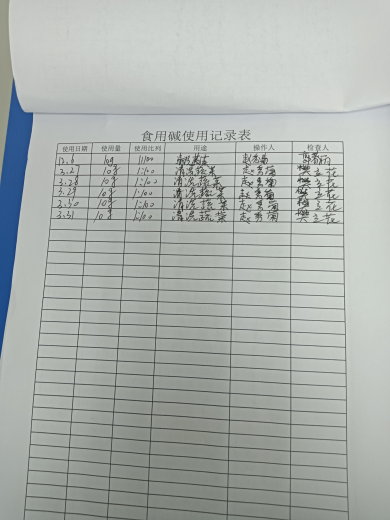 食用碱使用记录表
使用日期 使用量 使用比列 用途 操作人 检查人
12.6 10g 1:100 赵秀菊
3.27 10g 1:100 清洗蔬菜 赵秀菊 樊立花
3.28 10g 1:100 清洗蔬菜 赵秀菊 樊立花
3.29 10g 1:100 清洗蔬菜 赵秀菊 樊立花
3.30 10g 1:100 清洗蔬菜 赵秀菊 樊立花
3.31 10g 1:100 清洗蔬菜 赵秀菊 樊立花